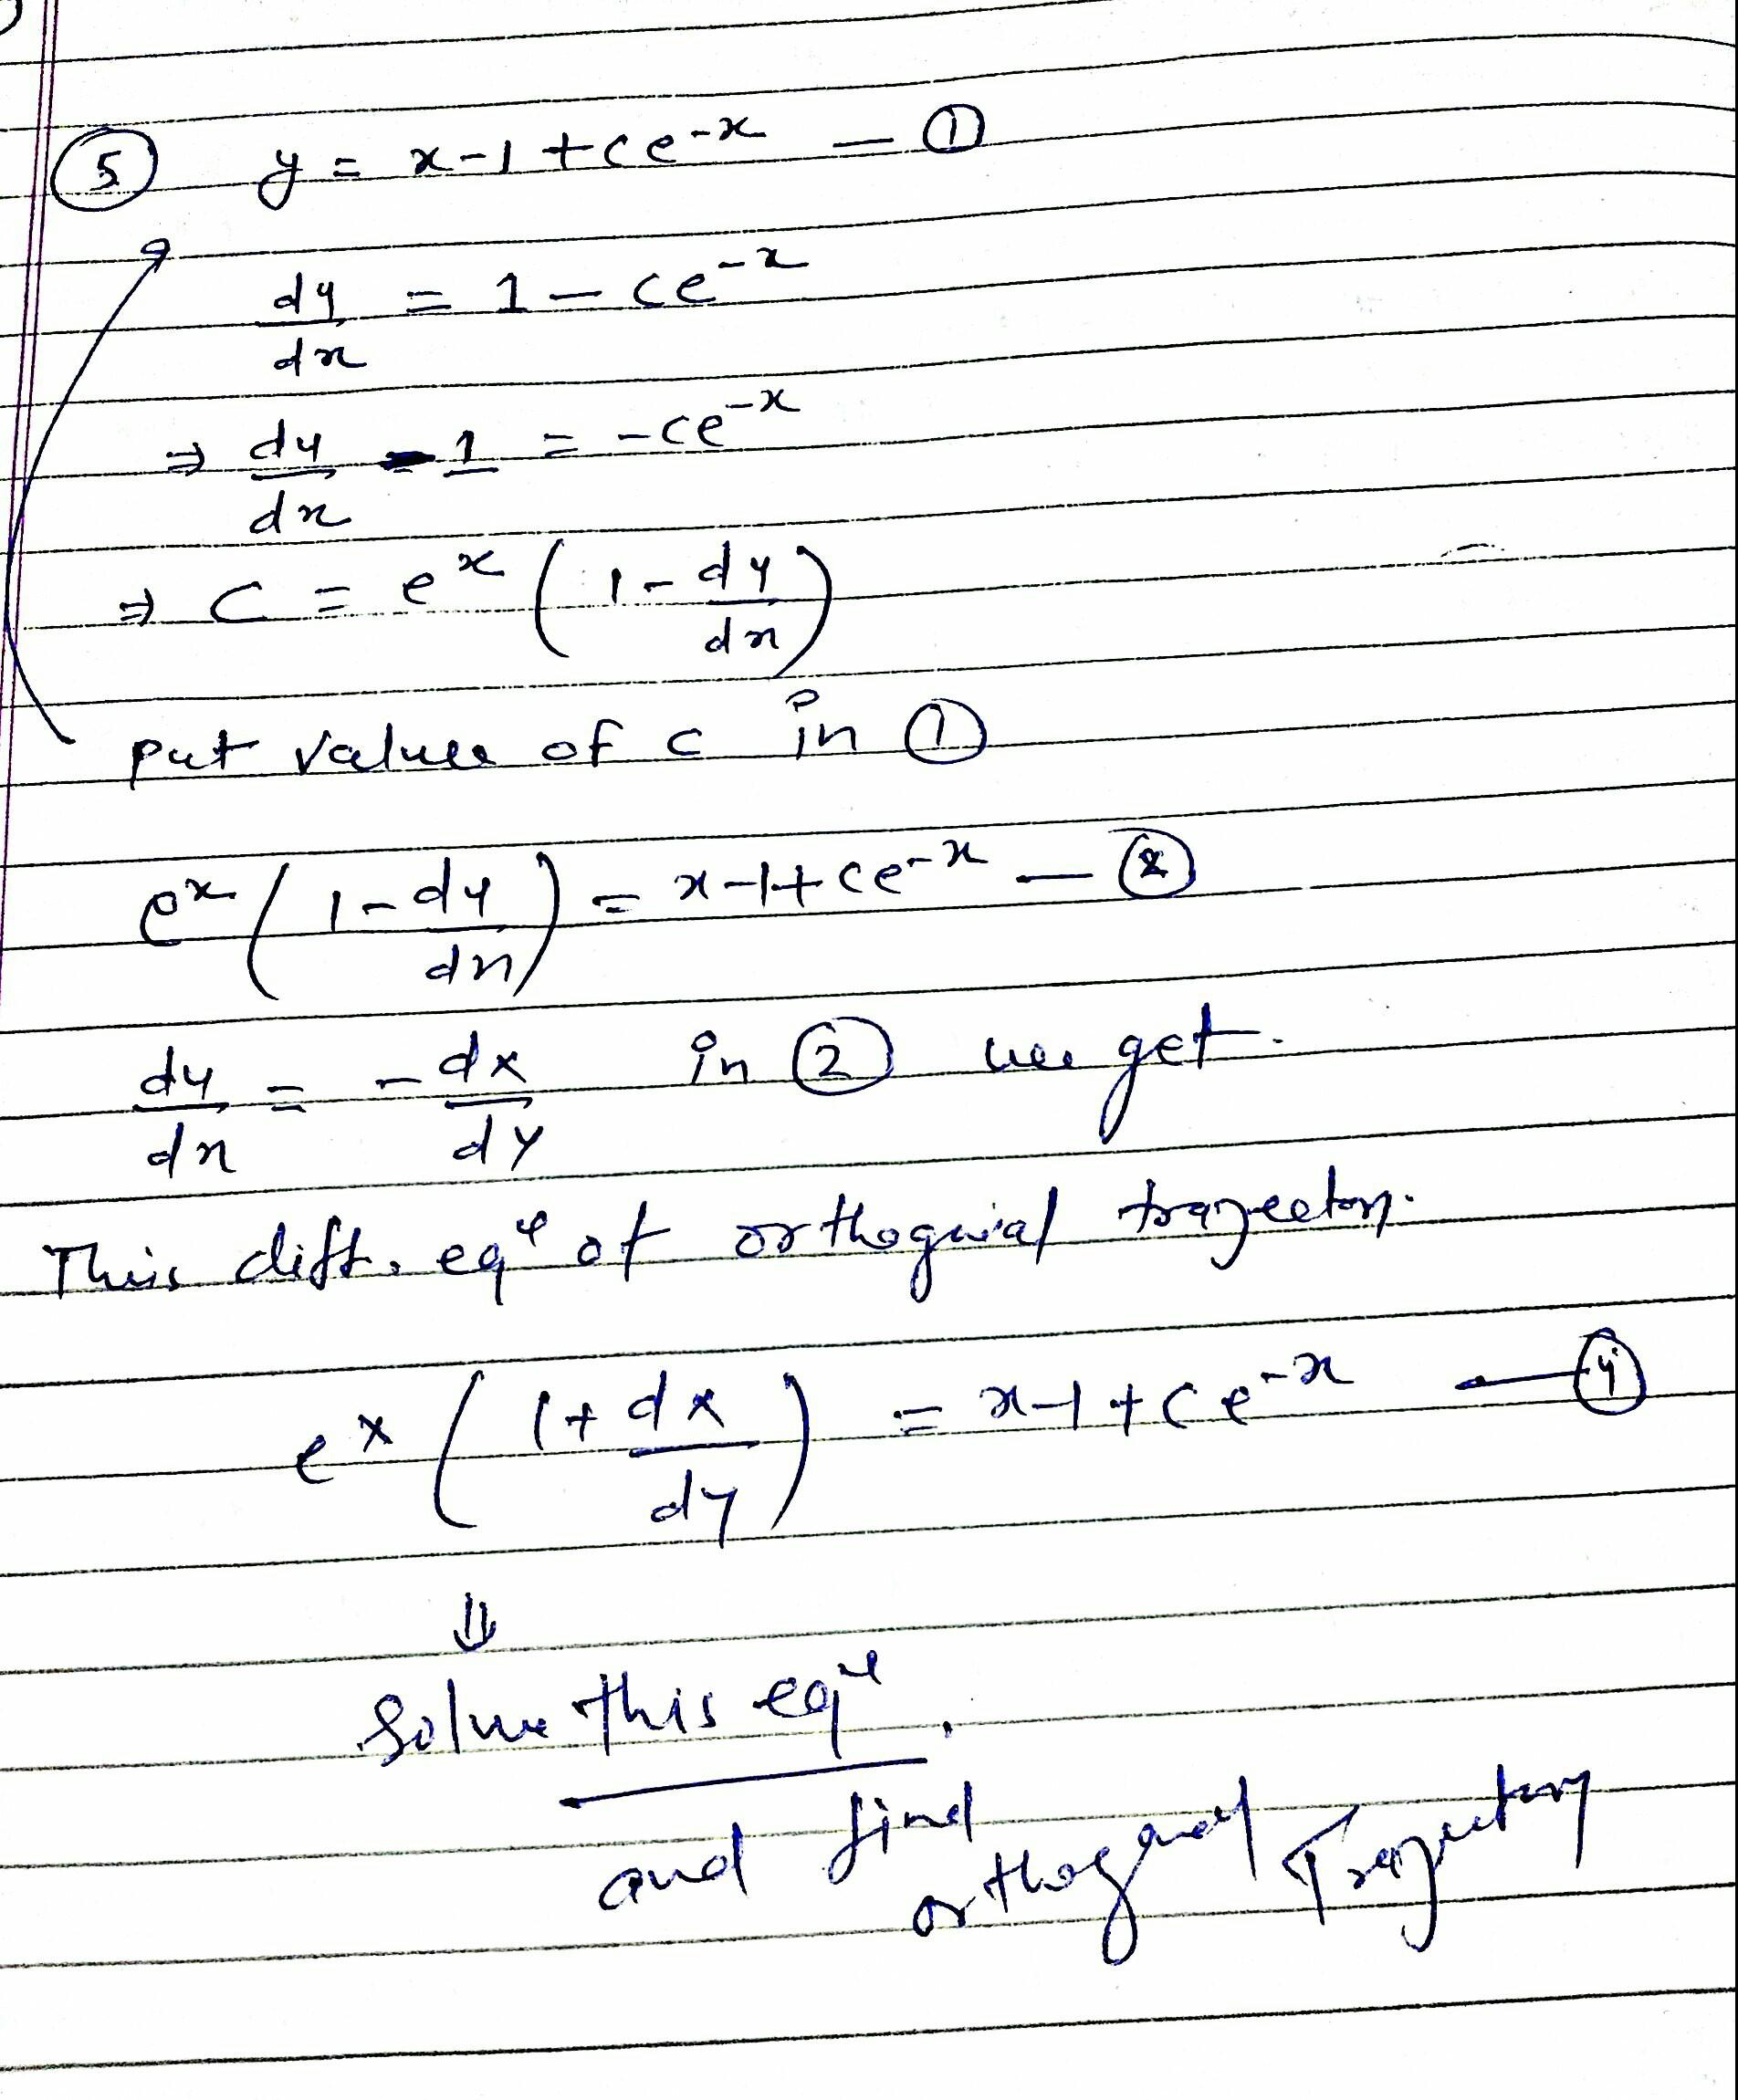 ⑤ y = x-1 + ce^-x — ①
dy/dx = 1 - ce^-x
⇒ dy/dx - 1 = -ce^-x
⇒ C = e^x (1 - dy/dx)
put values of c in ①
e^x (1 - dy/dx) = x-1+ce^-x — ②
dy/dx = -dx/dy in ② we get.
This diff. eqⁿ of orthogonal trajectory.
e^x (1 + dx/dy) = x-1+ce^-x — ④
⇓
Solve this eqⁿ.
and find
orthogonal Trajectory